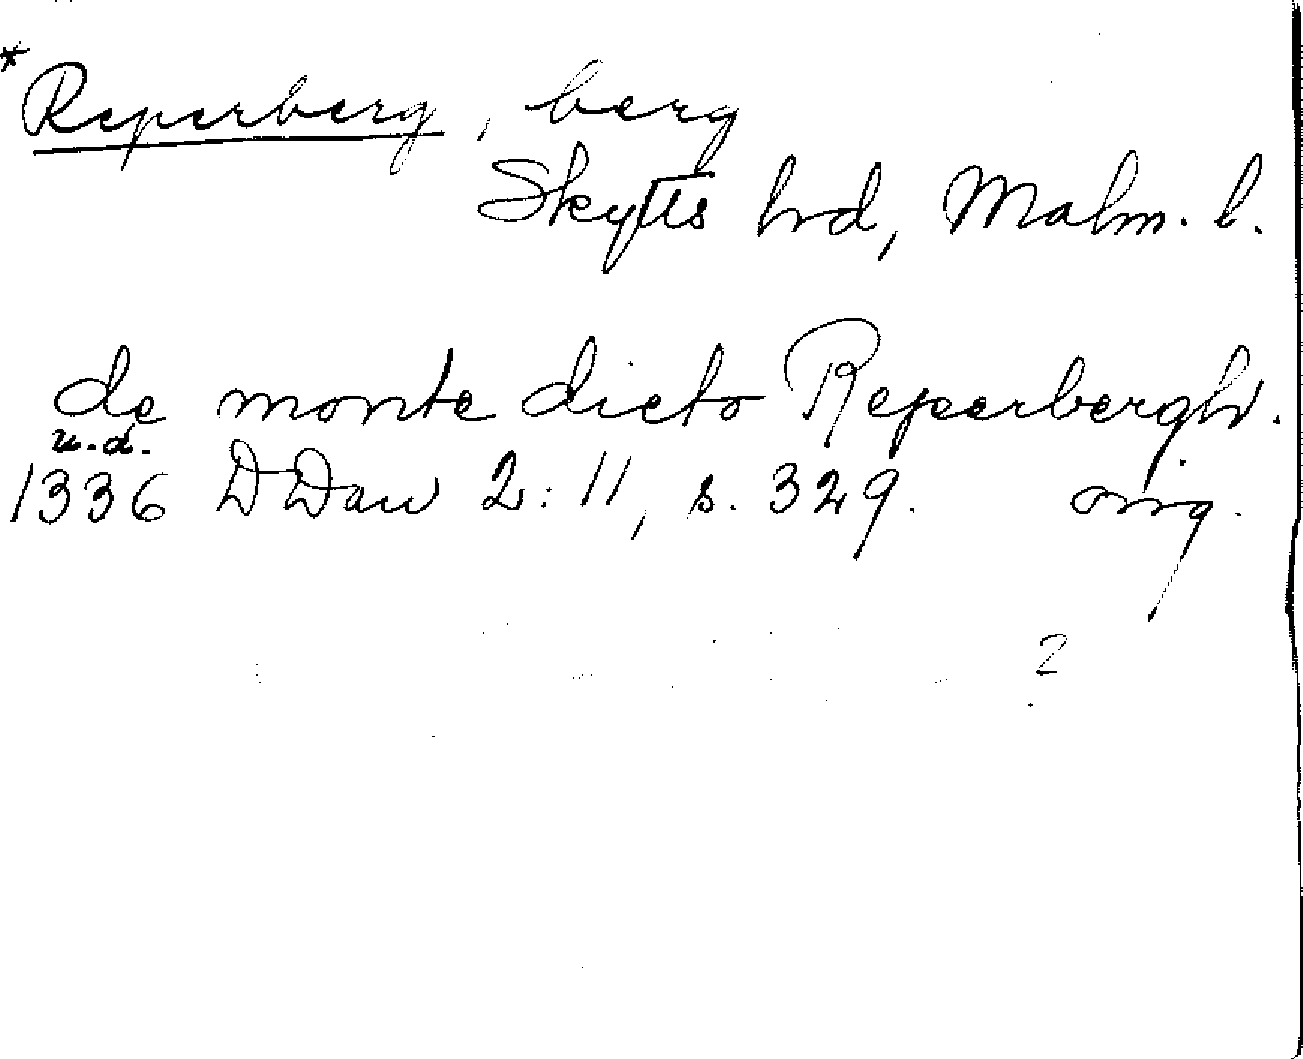 *Reperberg, berg
Skytts hrd, Malm. l.
de monte dicto Reperbergh.
u.d.
1336 DDan 2:11, s. 329. orig.
2